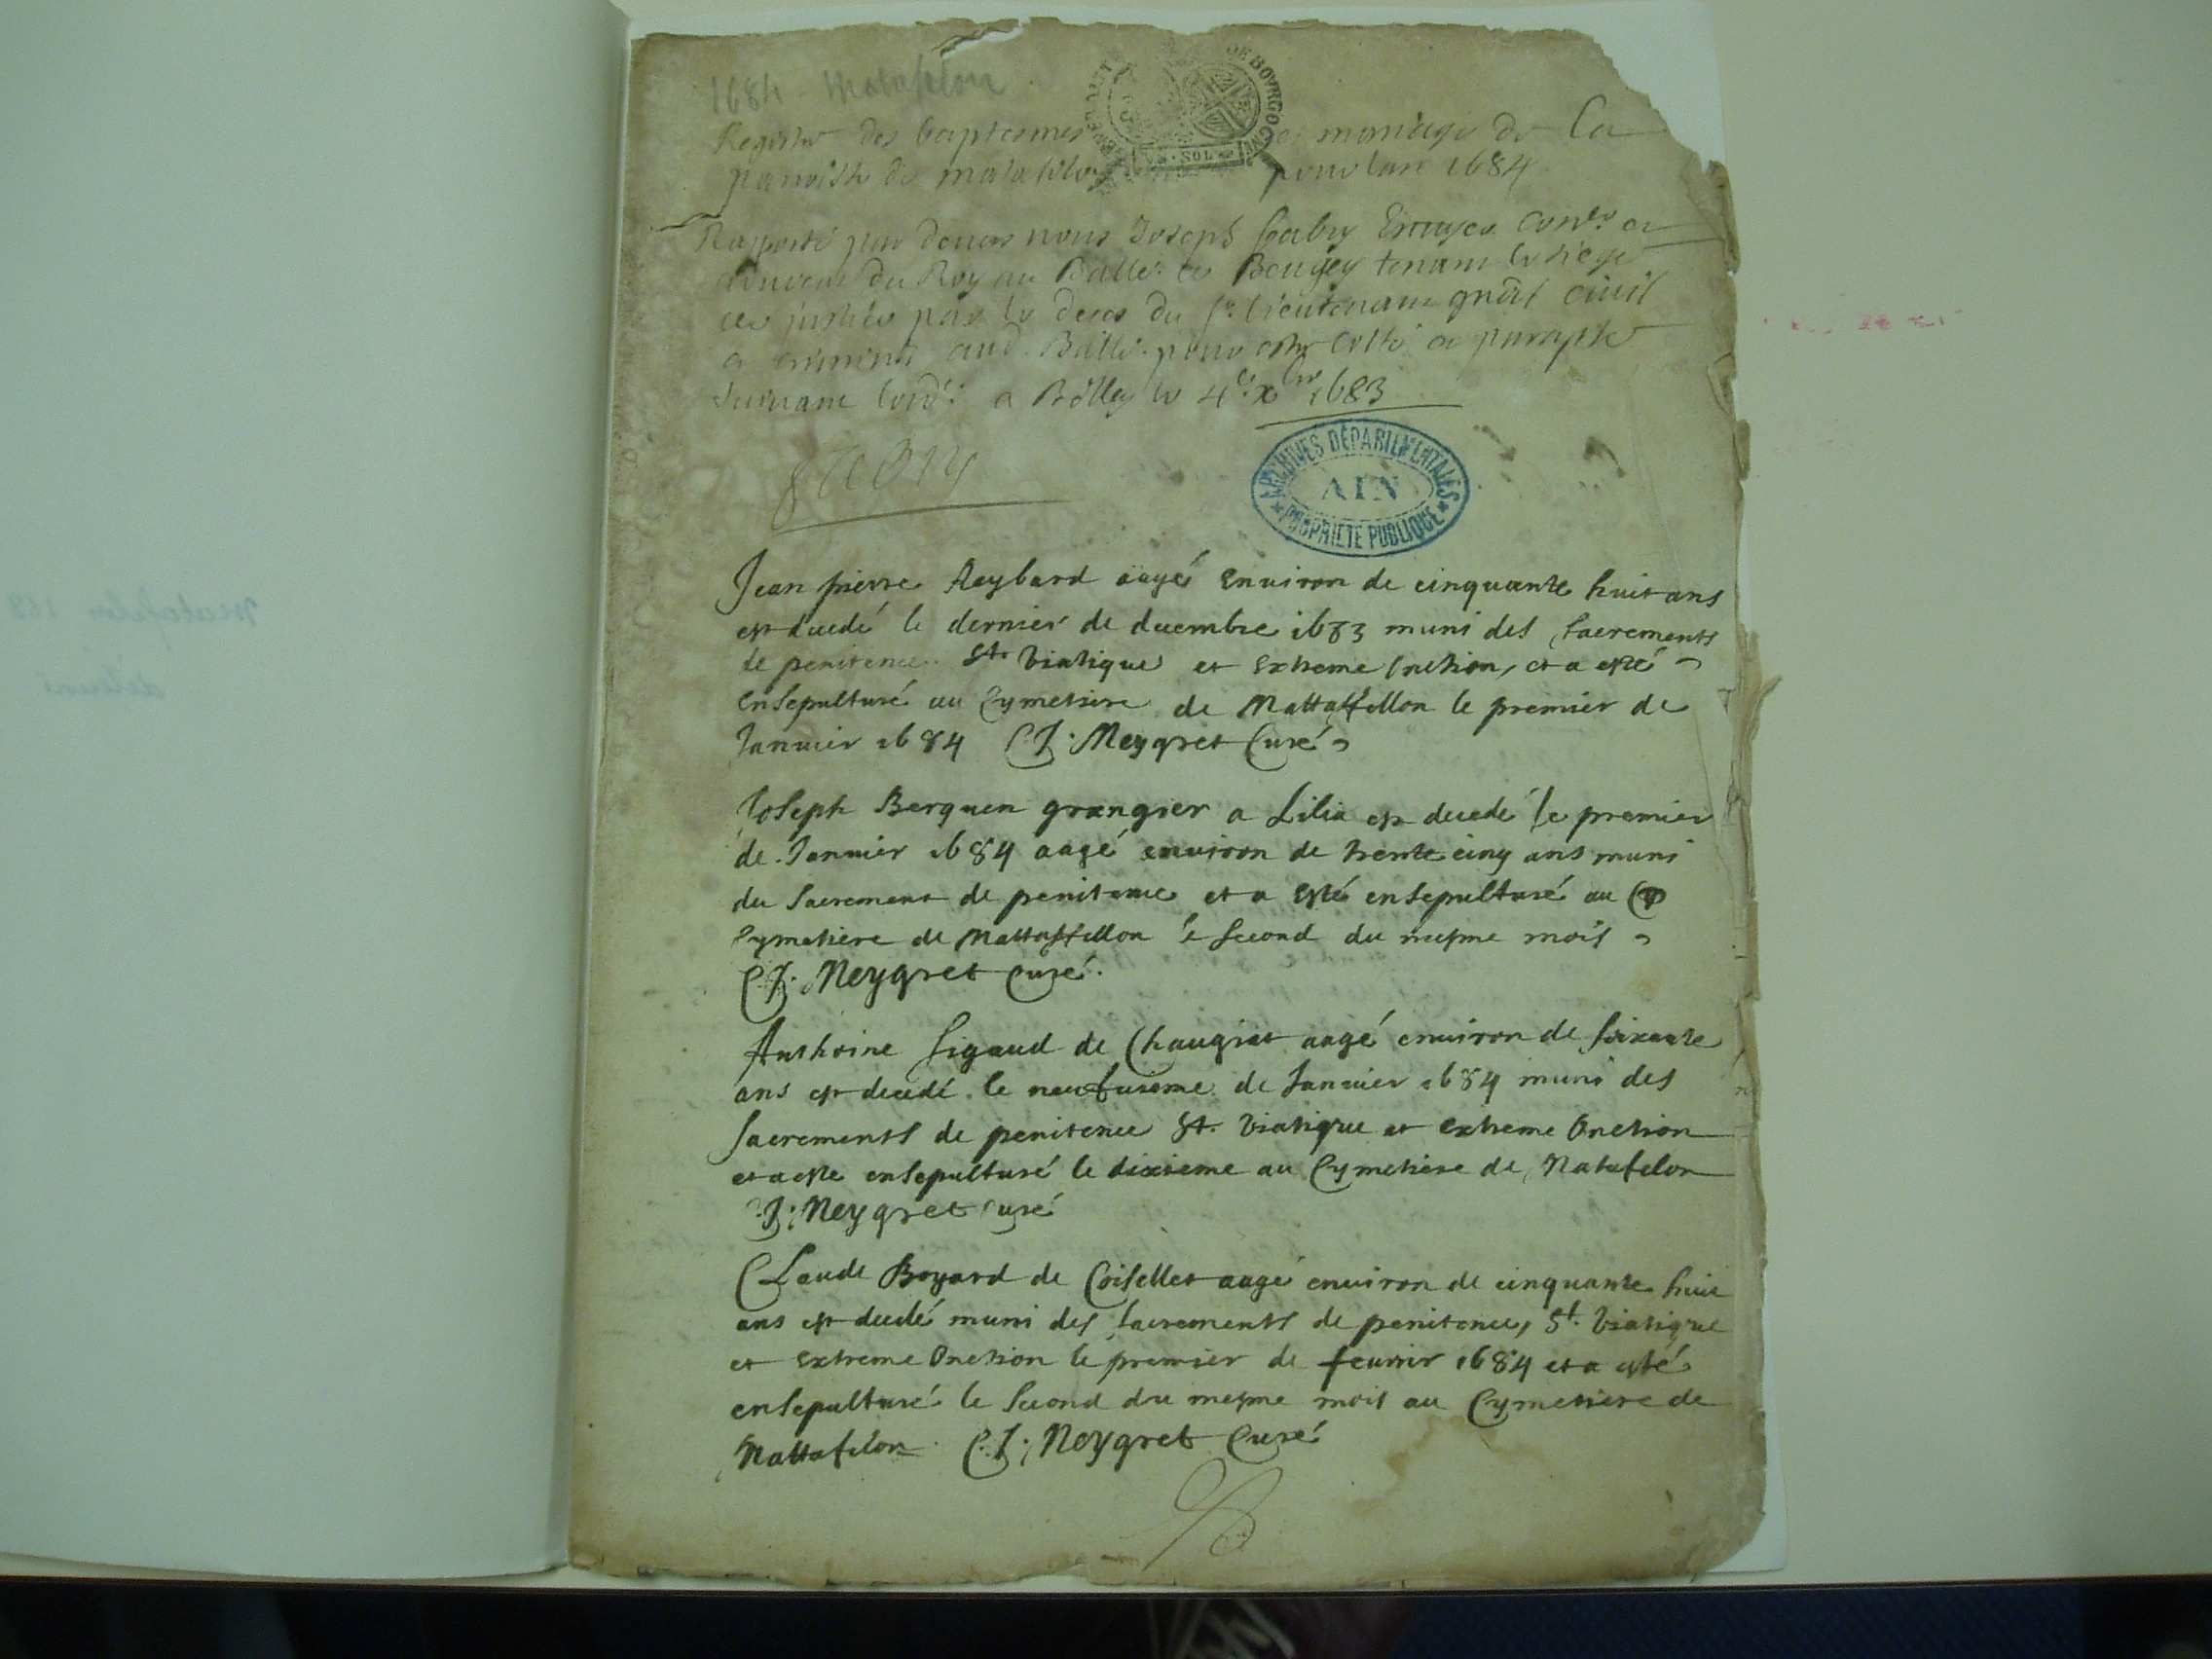 1684 Matafelon
DE BOURGOGNE
SOL
Registre des baptesmes et mariage de La
parroisse de matafelon pour lan 1684
Rapporté par devant nous Joseph fabry Escuyer con.er et
advocat du Roy au Balle. de Beugey tenant le siege
de justice par le deces du s.r lieutenant gnãl civil
et criminel aud. Balle. pour estre cotté et paraphé
suivant lord.ce a Belley le 4.e xbre 1683
fabry
ARCHIVES DÉPARTEMENTALES
AIN
PROPRIETE PUBLIQUE
Jean pierre Reybard aagé enuiron de cinquante huit ans
est decedé le dernier de decembre 1683 muni des sacrements
de penitence St. Viatique et Extreme Onction, et a esté
ensepulturé au Cymetiere de Mattaffellon le premier de
Januier 1684 C.J. Meygret Curé
Joseph Berguen grangier a Lilia est decedé le premier
de Januier 1684 aagé enuiron de trente cinq ans muni
du sacrement de penitence et a Esté ensepulturé au
Cymetiere de Mattaffellon le second du mesme mois
C.J. Meygret Curé.
Anthoine Sigaud de Chaugiat aagé enuiron de soixante
ans est decedé le neufuieme de Januier 1684 muni des
sacrements de penitence St. Viatique et extreme Onction
et a esté ensepulturé le dixieme au Cymetiere de Matafelon
C.J. Meygret Curé
Claude Boyard de Coiselles aagé enuiron de cinquante huit
ans est decedé muni des sacrements de penitence, St. Viatique
et extreme Onction le premier de feurier 1684 et a esté
ensepulturé le second du mesme mois au Cymetiere de
Mattafelon C.J. Meygret Curé